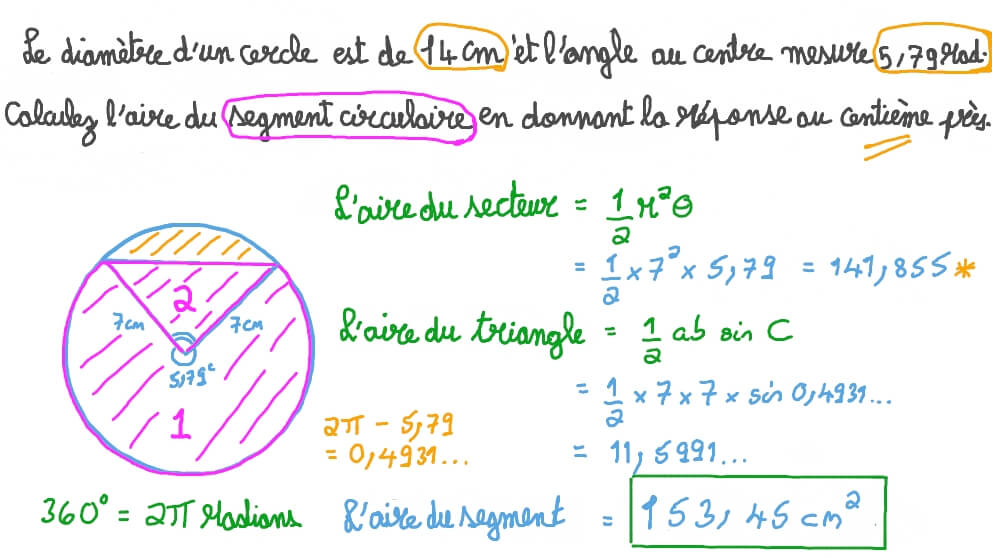 Le diamètre d'un cercle est de 14 cm et l'angle au centre mesure 5,79 rad.
Calculez l'aire du segment circulaire en donnant la réponse au centième près.
L'aire du secteur = 1/2 r²θ
= 1/2 × 7² × 5,79 = 141,855 *
L'aire du triangle = 1/2 ab sin C
= 1/2 × 7 × 7 × sin 0,4931...
= 11,5991...
L'aire du segment = 153,45 cm²
2
7cm 7cm
5,79ᶜ
1
2π - 5,79
= 0,4931...
360° = 2π Radians